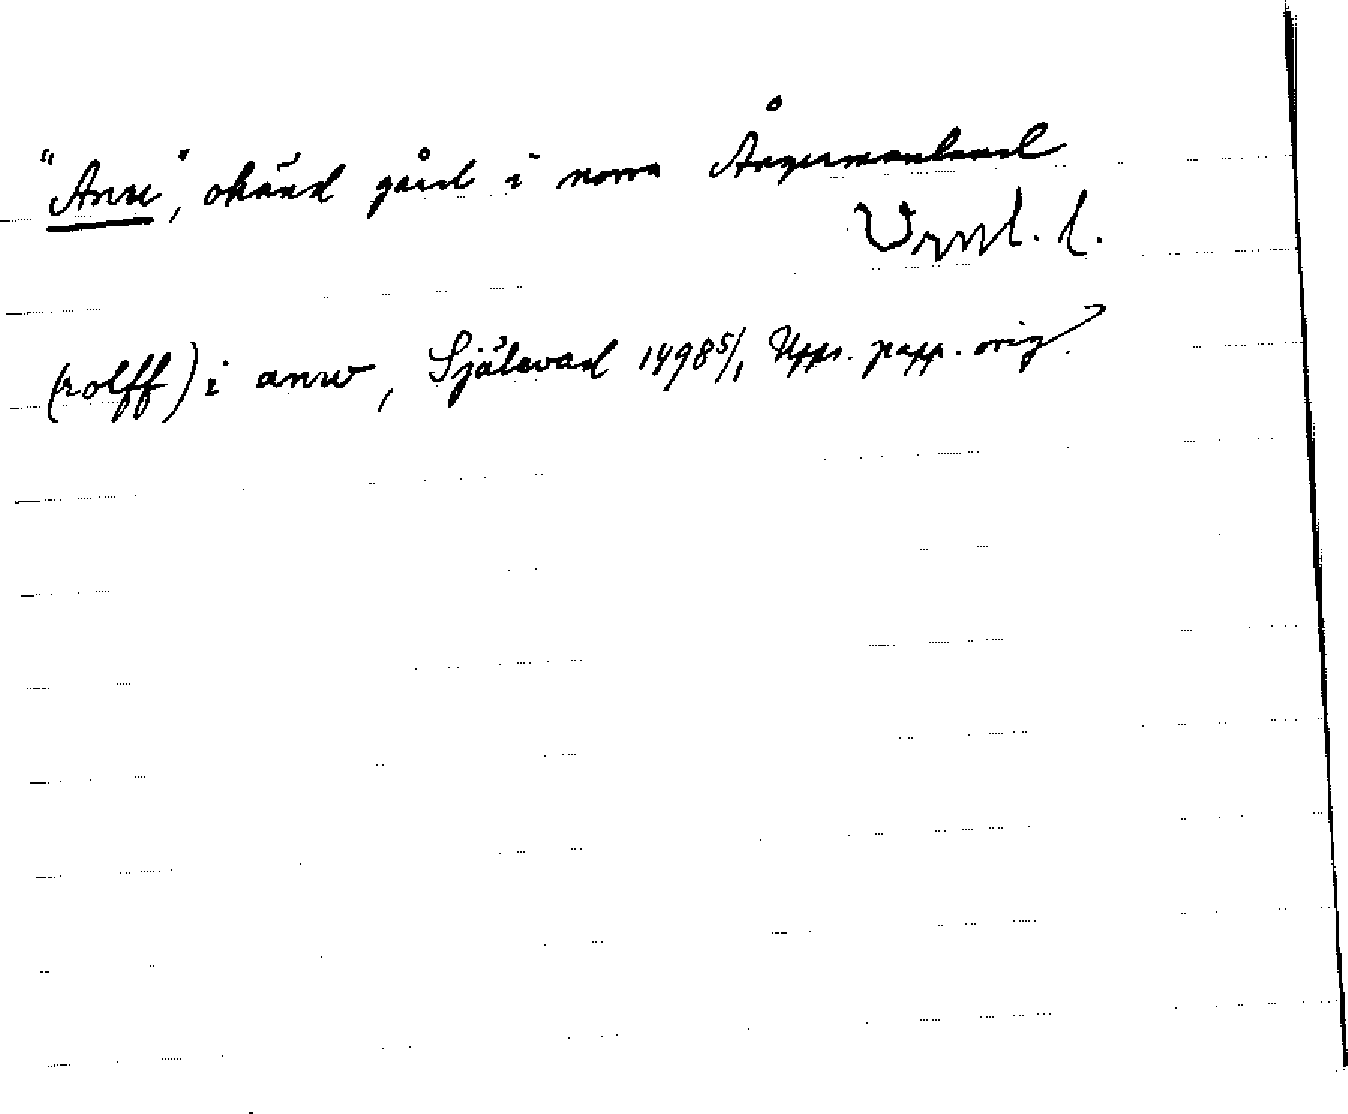 "Anw", okänd gård i norra Ångermanland
l.
(rolff) i anw, Själevad 1498 5/1 Upps. papp. orig.